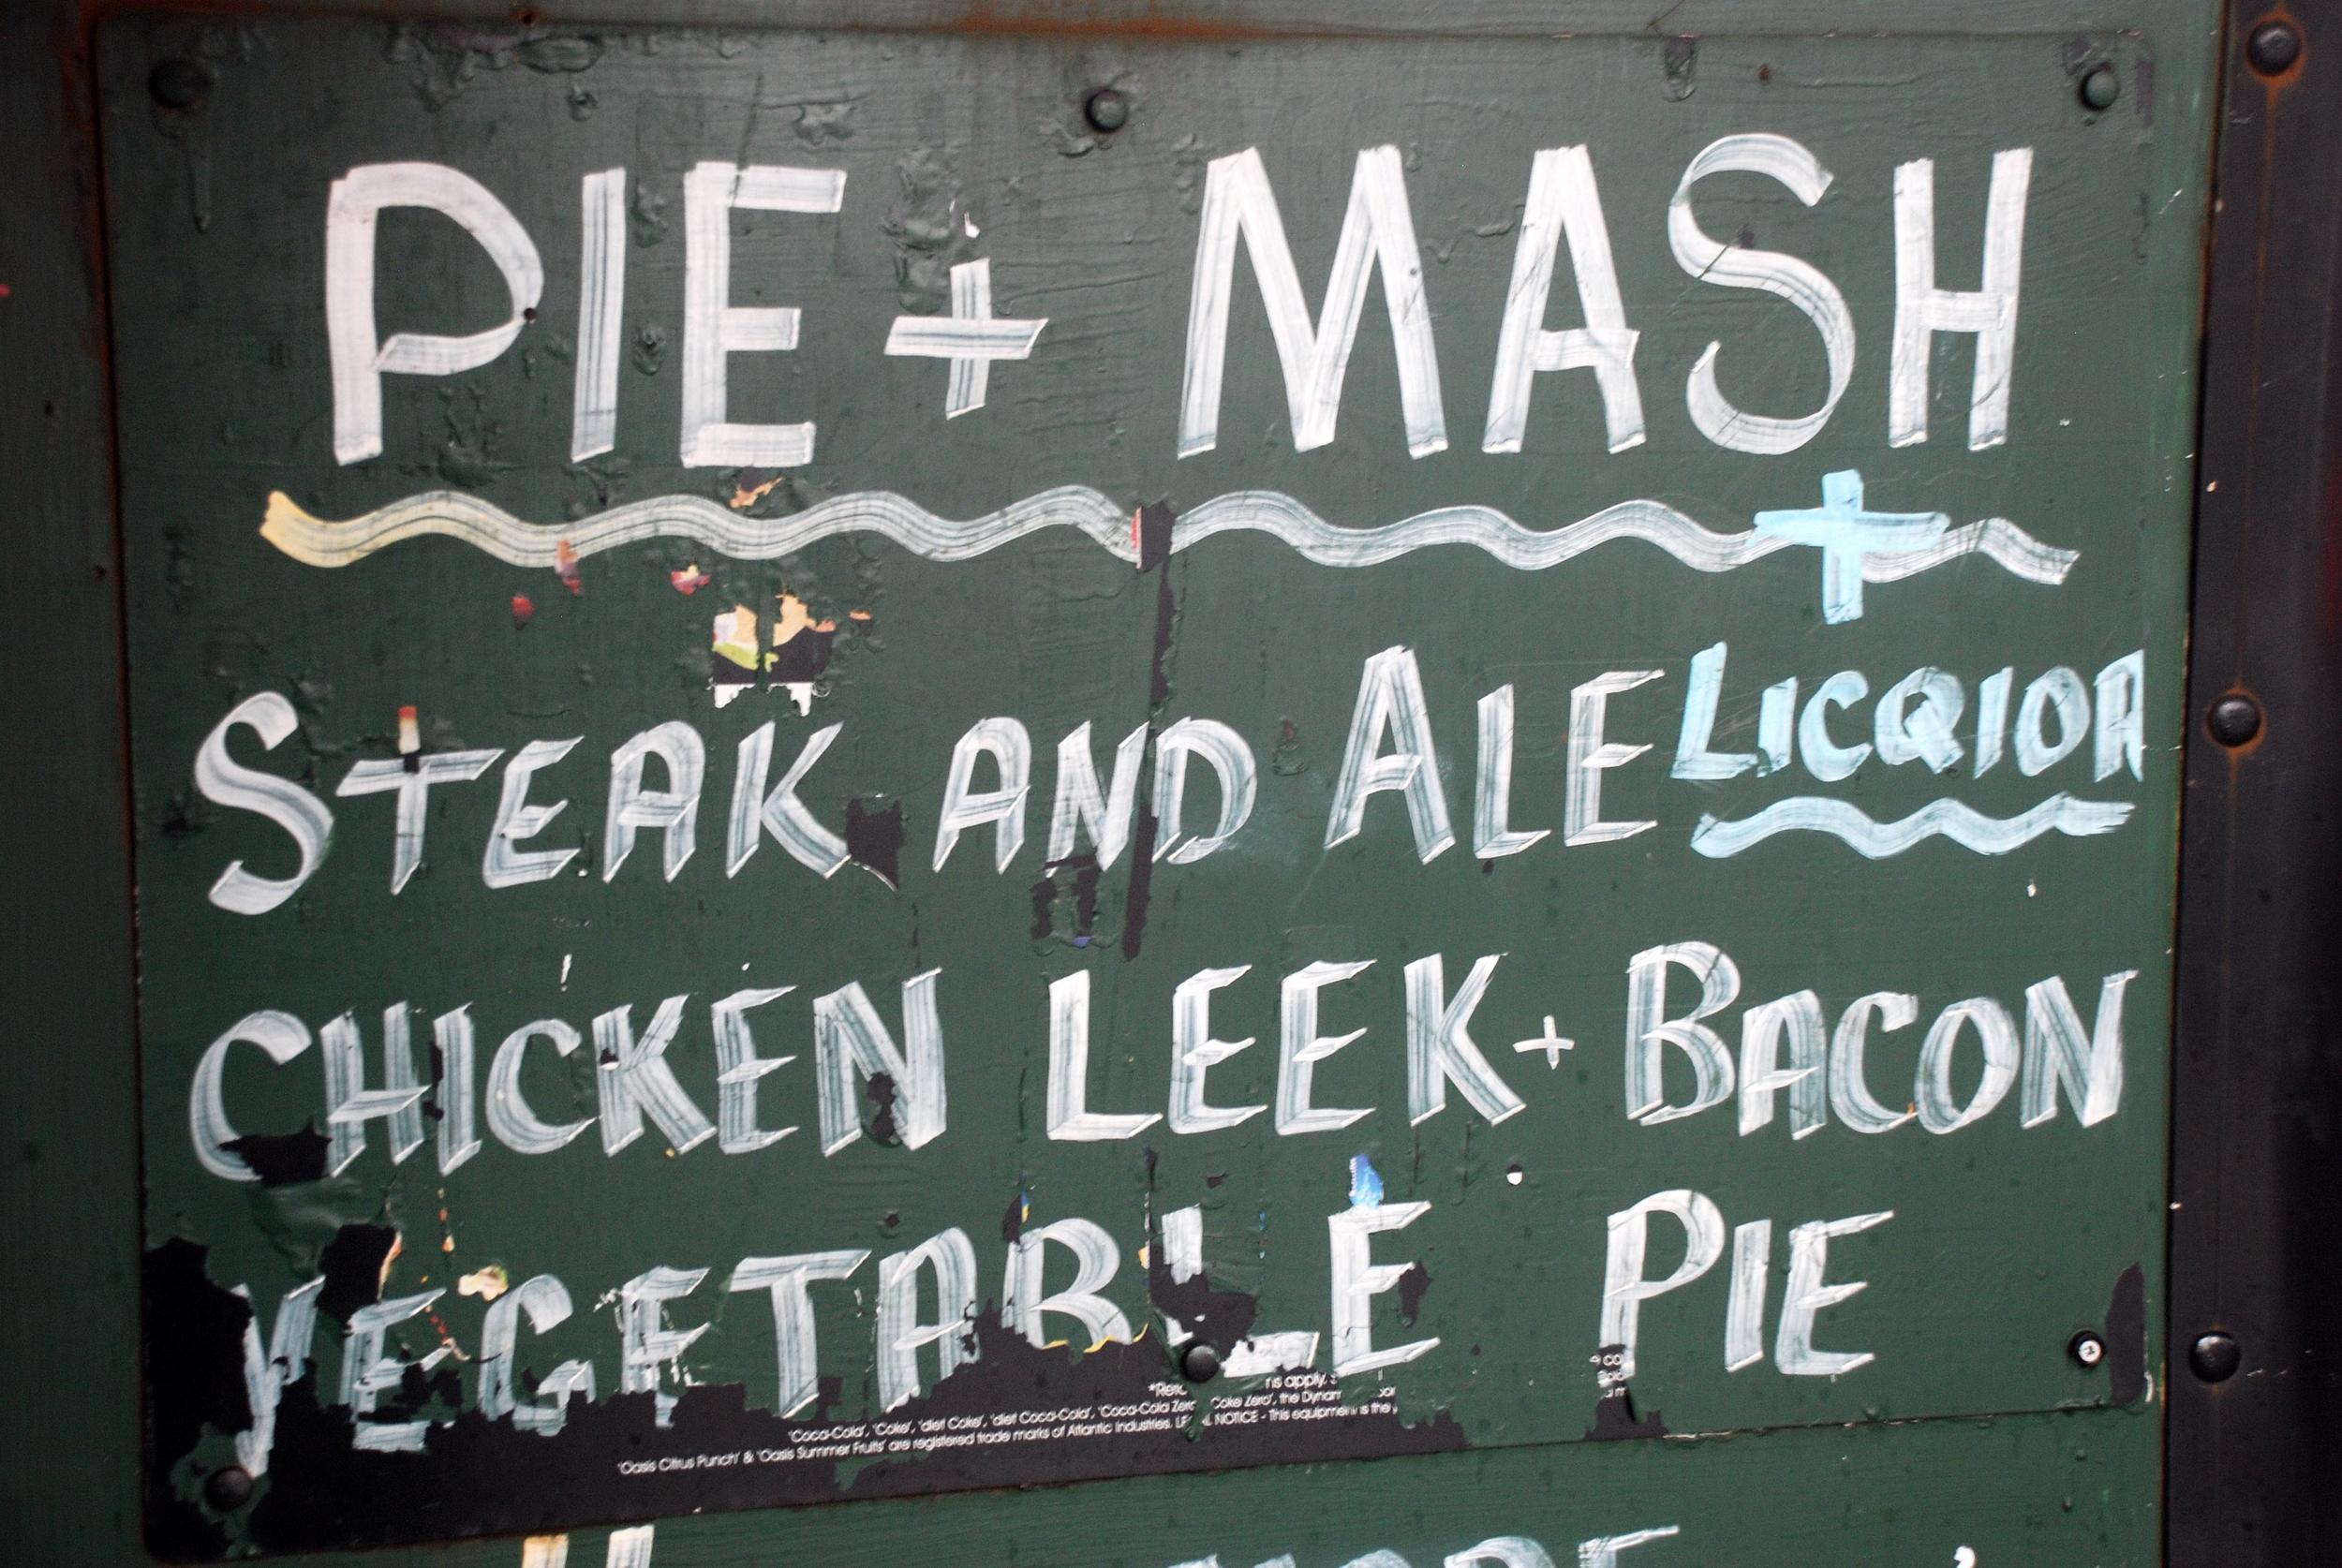 PIE + MASH
+
STEAK AND ALE LICQIOR
CHICKEN LEEK + BACON
VEGETABLE PIE
'Coca-Cola', 'Coke', 'diet Coke', 'diet Coca-Cola', 'Coca-Cola Zero' Coke Zero', the
'Oasis Citrus Punch' & 'Oasis Summer Fruits' are registered trade marks of Atlantic Industries. NOTICE - This equipment is the